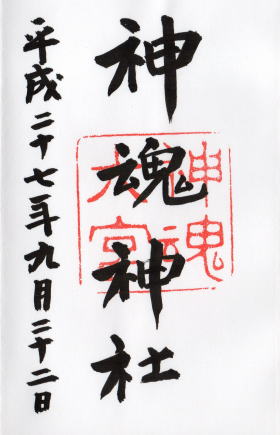 神魂神社
神魂
大宮
平成二十七年九月二十二日